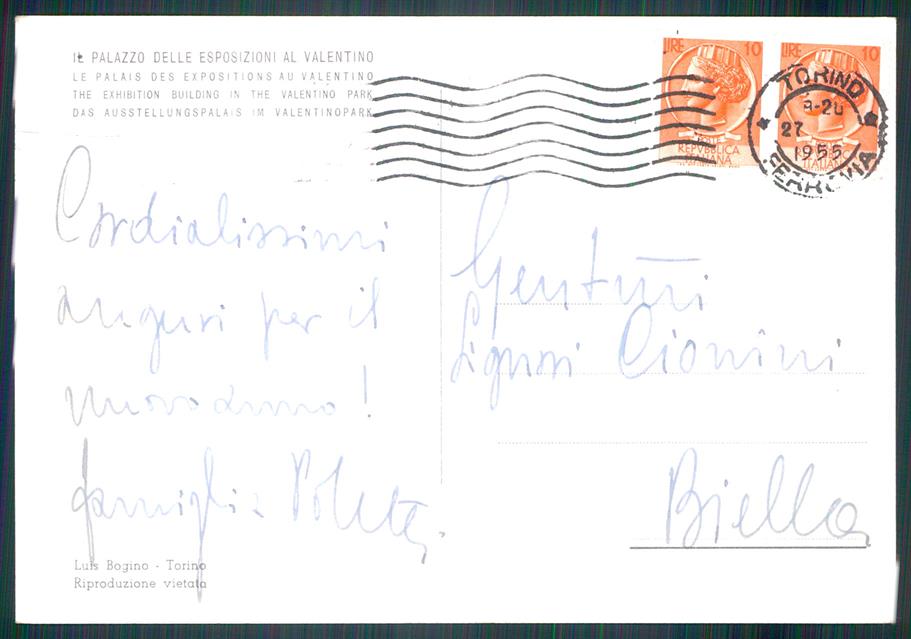 IL PALAZZO DELLE ESPOSIZIONI AL VALENTINO
LE PALAIS DES EXPOSITIONS AU VALENTINO
THE EXHIBITION BUILDING IN THE VALENTINO PARK
DAS AUSSTELLUNGSPALAIS IM VALENTINOPARK
LIRE 10
POSTE
REPVBBLICA
ITALIANA
LIRE 10
ITALIANA
TORINO
27
1955
FERROVIA
Cordialissimi
auguri per il
nuovo anno!
famiglia
Gent.mi
Signori Cionini
Biella
Luis Bogino - Torino
Riproduzione vietata